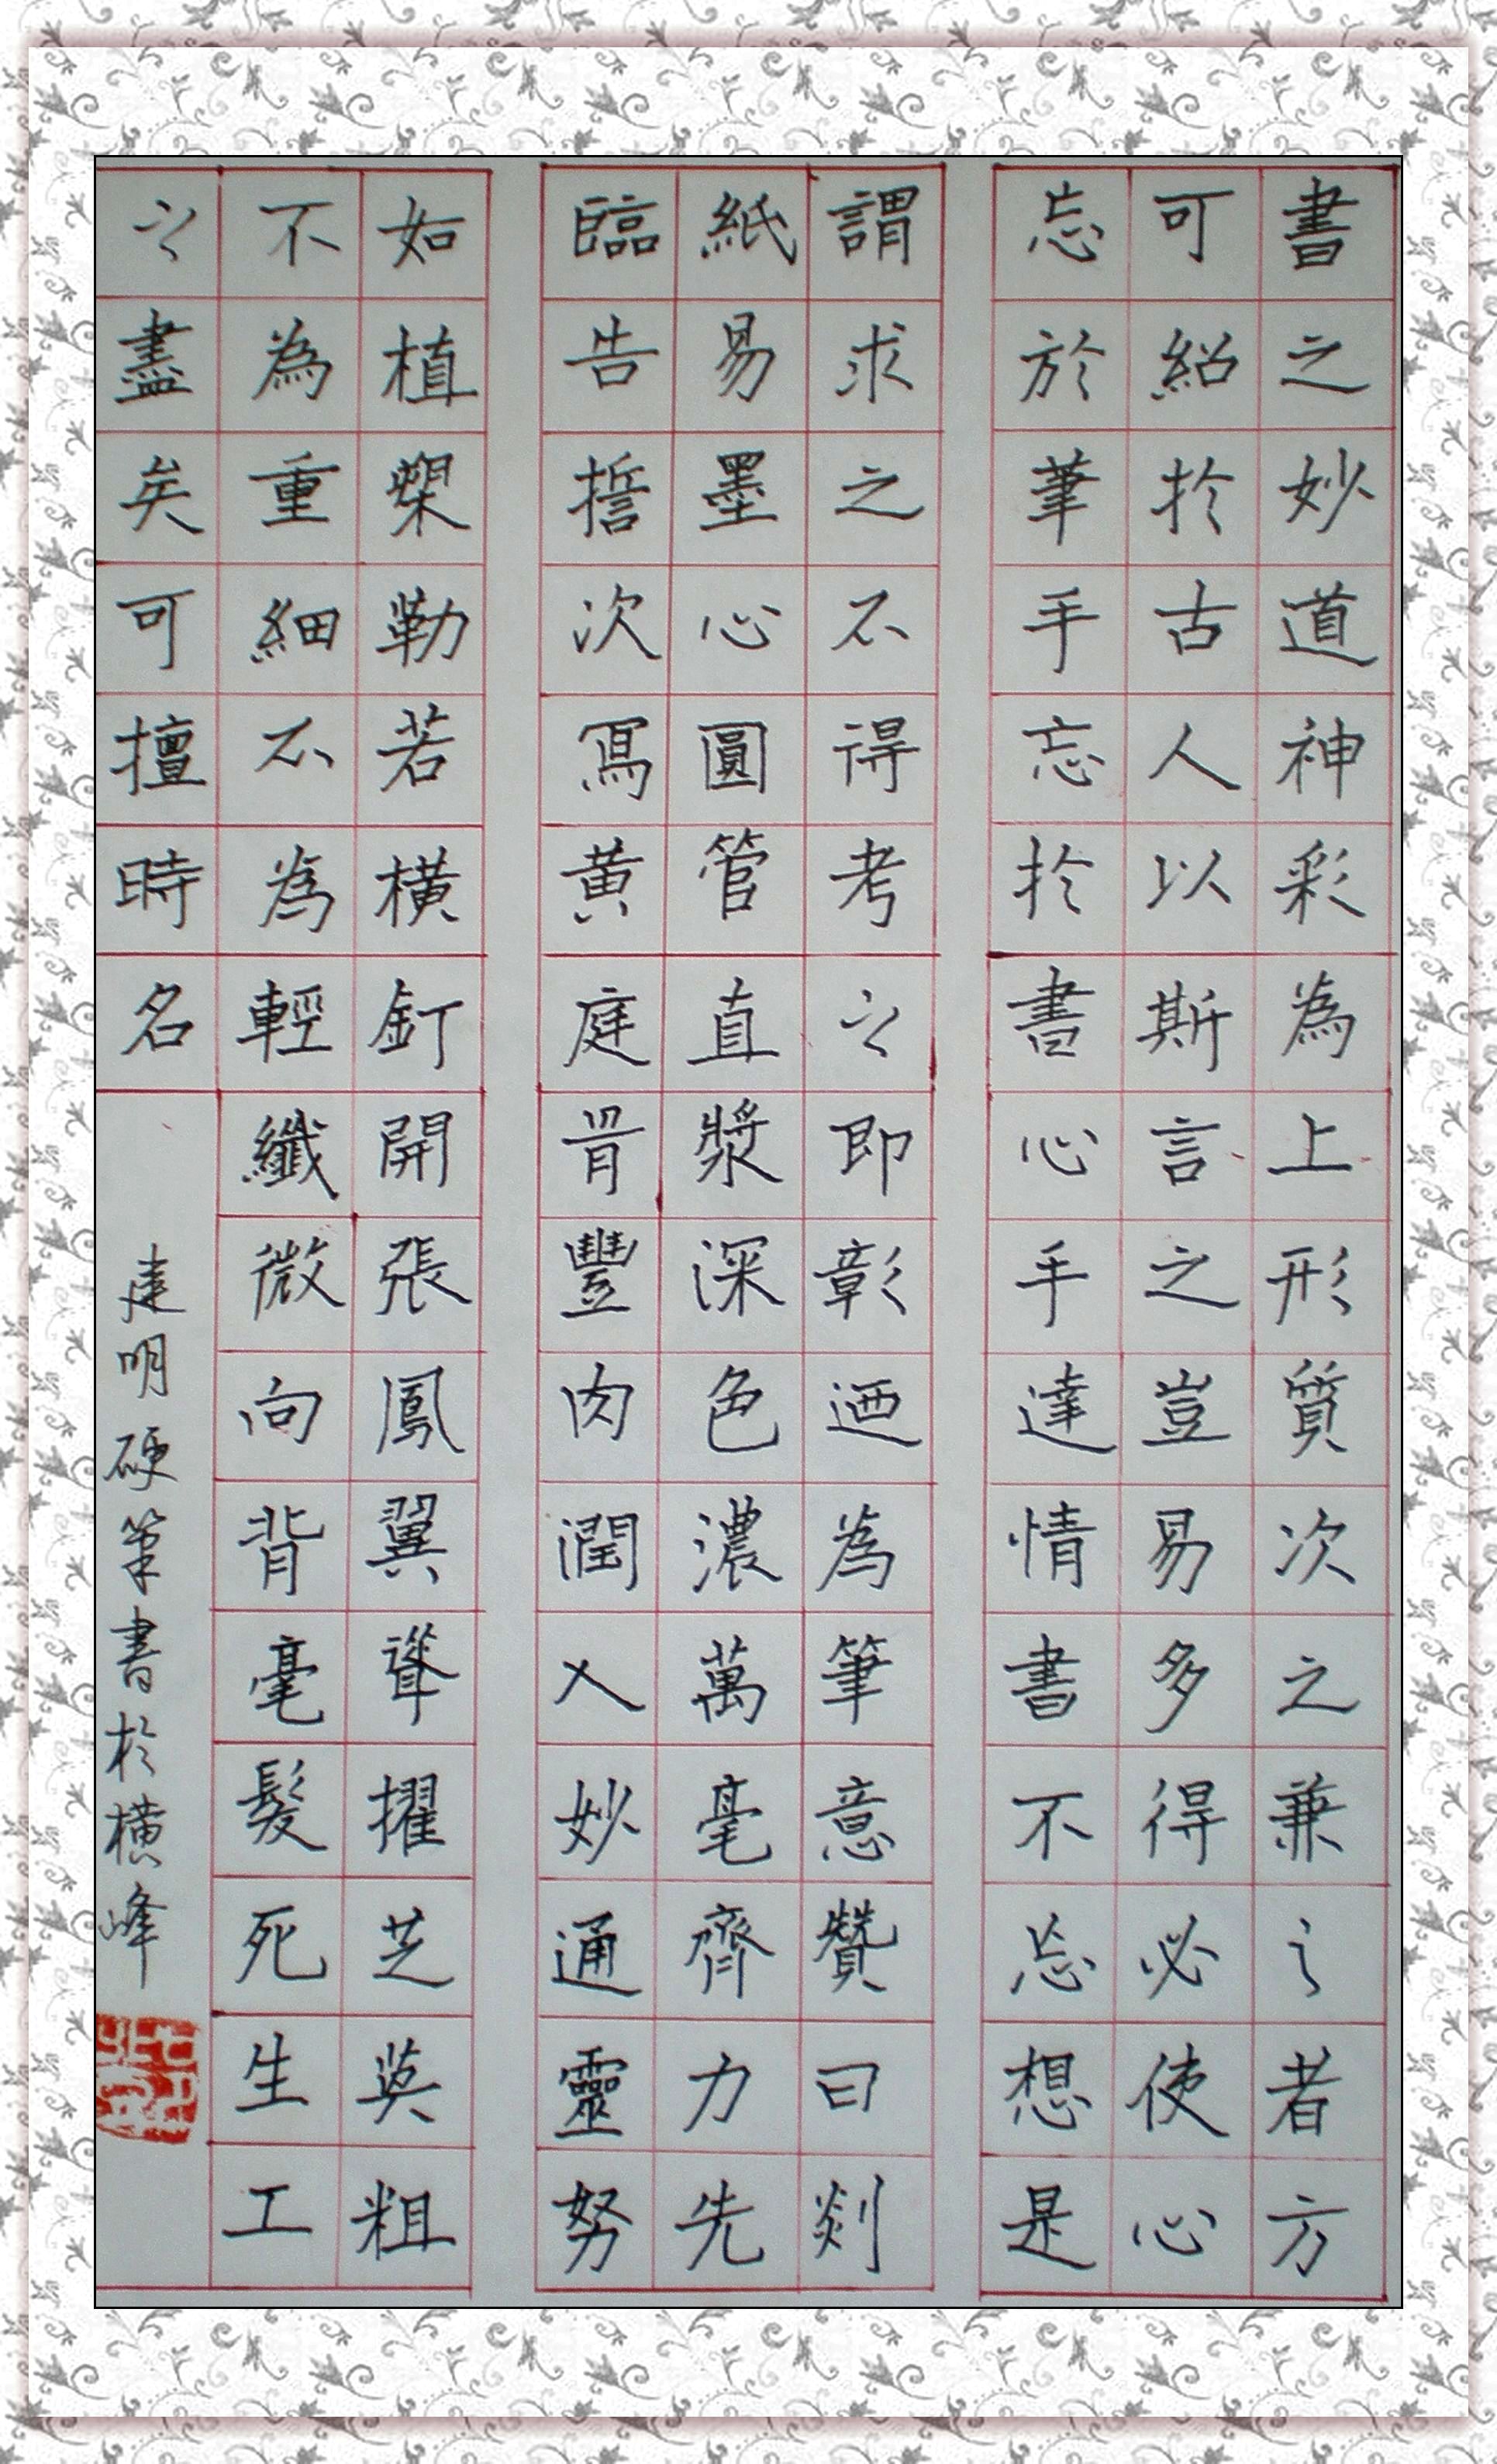 書之妙道神彩為上形質次之兼之者方
可紹於古人以斯言之豈易多得必使心
忘於筆手忘於書心手達情書不忘想是
謂求之不得考之即彰迺為筆意贊曰剡
紙易墨心圓管直漿深色濃萬毫齊力先
臨告誓次寫黃庭骨豐肉潤入妙通靈努
如植槊勒若橫釘開張鳳翼聳擢芝英粗
不為重細不為輕纖微向背毫髮死生工
之盡矣可擅時名
建明硬筆書於橫峰